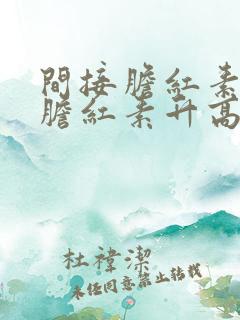 間接膽紅素
膽紅素升高
杜禕潔
未经同意禁止转载